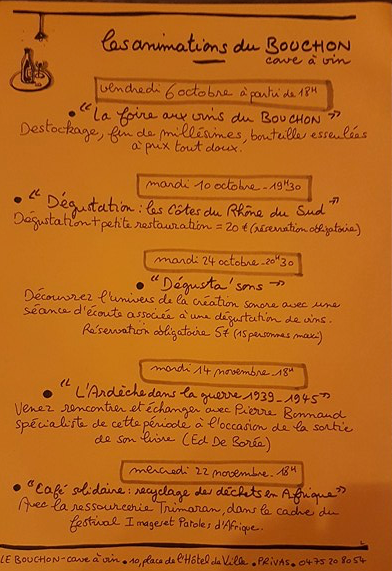 les animations du BOUCHON
cave à vin
vendredi 6 octobre à partir de 18H
• "La foire aux vins du BOUCHON"
Destockage, fin de millésimes, bouteilles esseulées
à prix tout doux.
mardi 10 octobre - 19H30
• "Dégustation : les Côtes du Rhône du Sud"
Dégustation + petite restauration = 20 € (réservation obligatoire)
mardi 24 octobre - 20H30
• "Dégusta'sons"
Découvrez l'univers de la création sonore avec une
séance d'écoute associée à une dégustation de vins.
Réservation obligatoire 5€ (15 personnes maxi)
mardi 14 novembre - 18H
• "L'Ardèche dans la guerre 1939-1945"
Venez rencontrer et échanger avec Pierre Bonnaud
spécialiste de cette période à l'occasion de la sortie
de son livre (Ed De Borée)
mercredi 22 novembre - 18H
• "Café solidaire : recyclage de déchets en Afrique"
Avec la ressourcerie Trimaran, dans le cadre du
festival Images et Paroles d'Afrique.
LE BOUCHON - cave à vin • 10, place de l'Hôtel de Ville • PRIVAS • 04 75 20 80 54